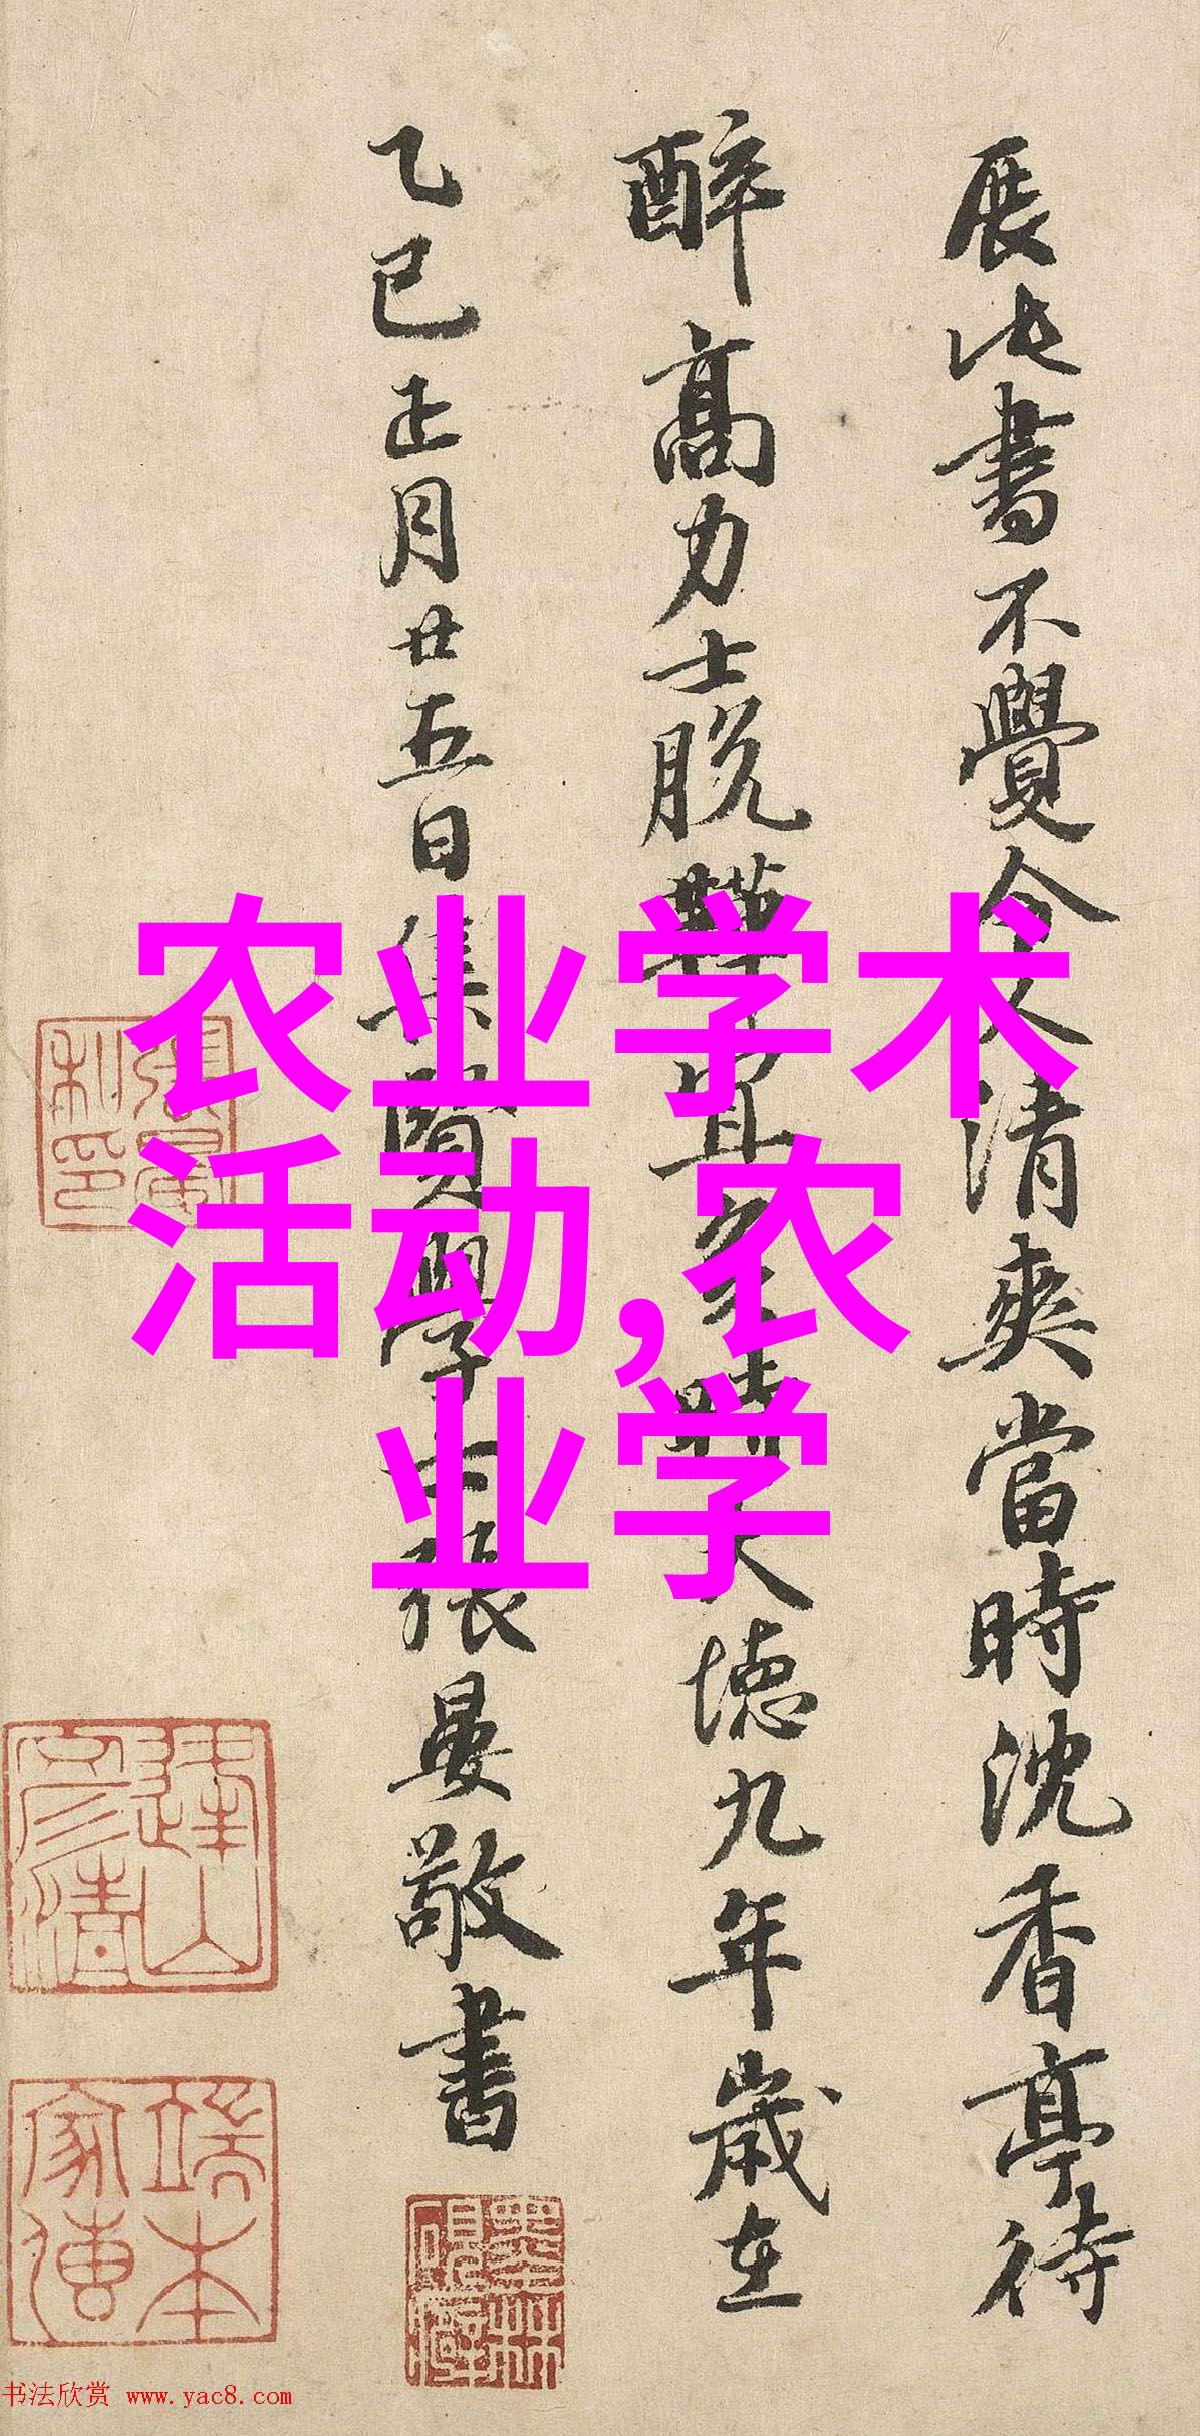 展此書不覺令人清爽當時沈香亭待
醉高力士脱鞾宜矣時大德九年歲在
乙巳正月廿五日集賢學士張晏敬書
农业学术
活动,农
业学
书法欣赏 www.yac8.com